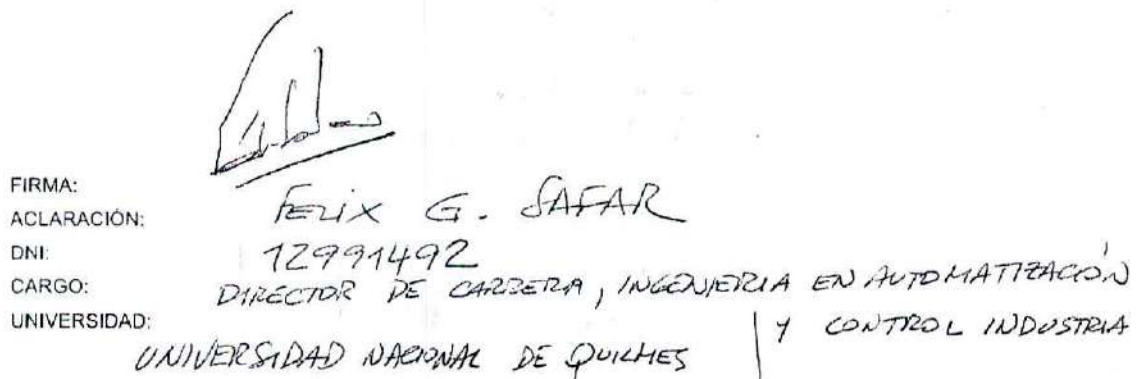 FIRMA:
ACLARACIÓN: FELIX G. SAFAR
DNI: 12991492
CARGO: DIRECTOR DE CARRERA, INGENIERIA EN AUTOMATIZACIÓN
Y CONTROL INDUSTRIA
UNIVERSIDAD:
UNIVERSIDAD NACIONAL DE QUILMES